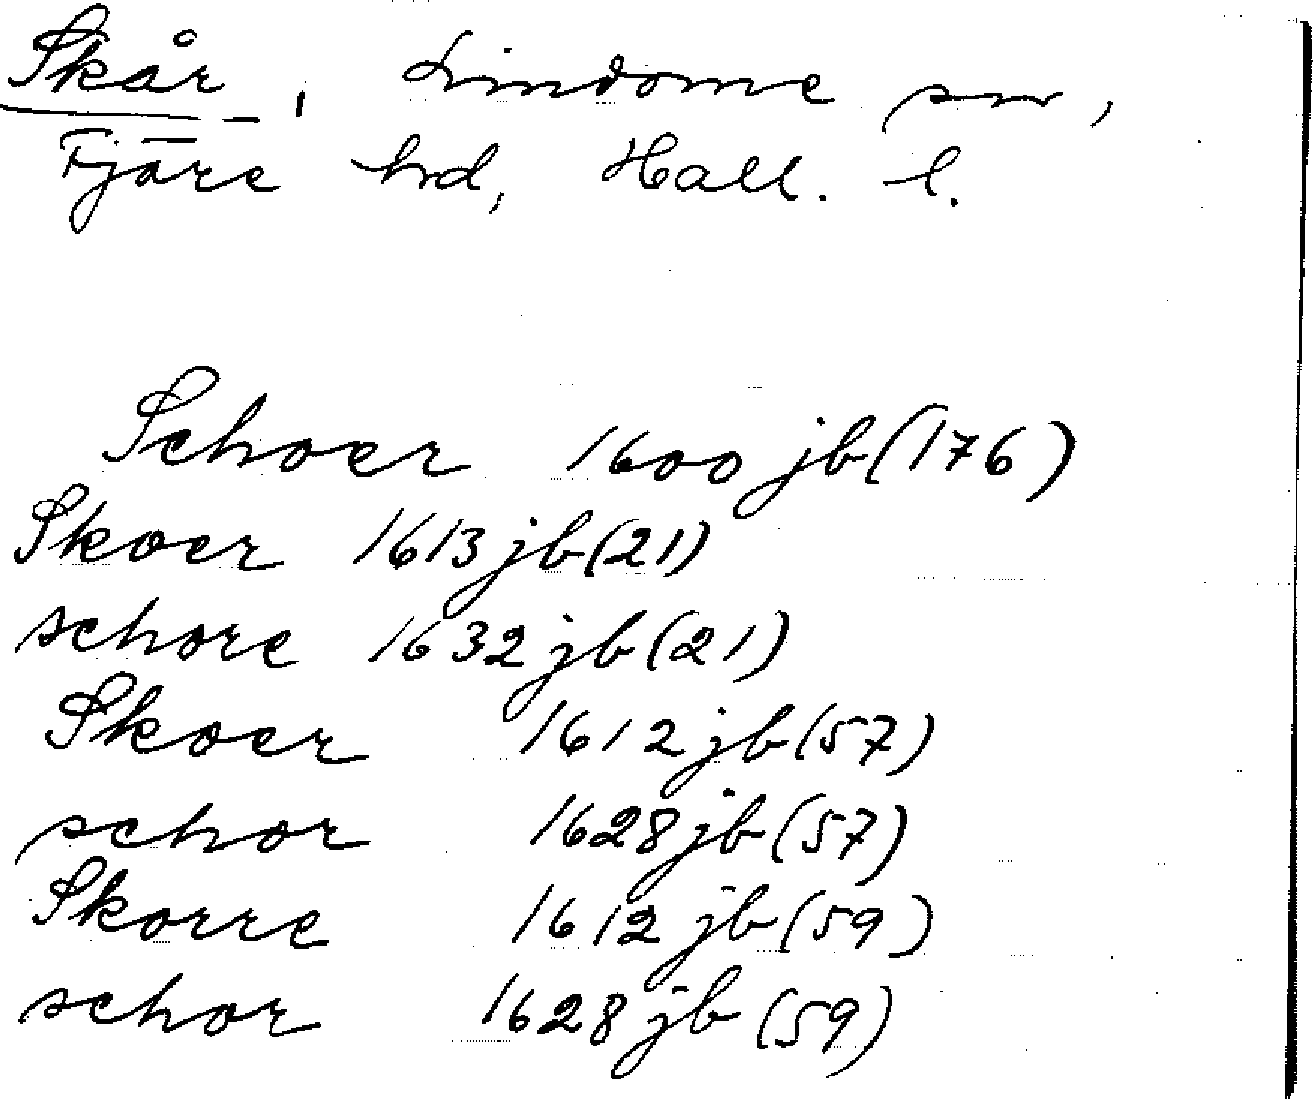 Skår, Lindome sn,
Fjäre hrd, Hall. l.
Schoer 1600 jb(176)
Skoer 1613 jb(21)
schore 1632 jb(21)
Skoer 1612 jb(57)
schor 1628 jb(57)
Skorre 1612 jb(59)
schor 1628 jb(59)